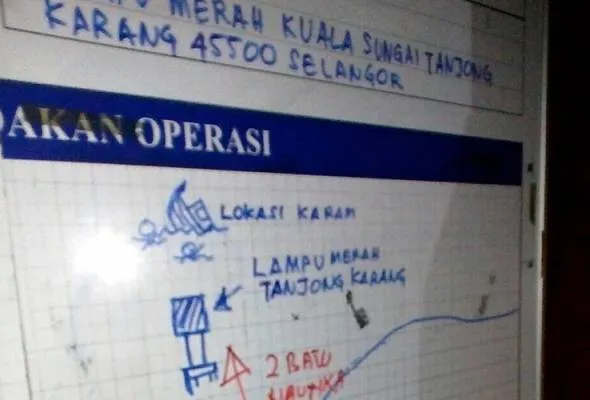 MERAH KUALA SUNGAI TANJONG
KARANG 45500 SELANGOR
AKAN OPERASI
LOKASI KARAM
LAMPU MERAH
TANJONG KARANG
2 BATU
NAUTIKA